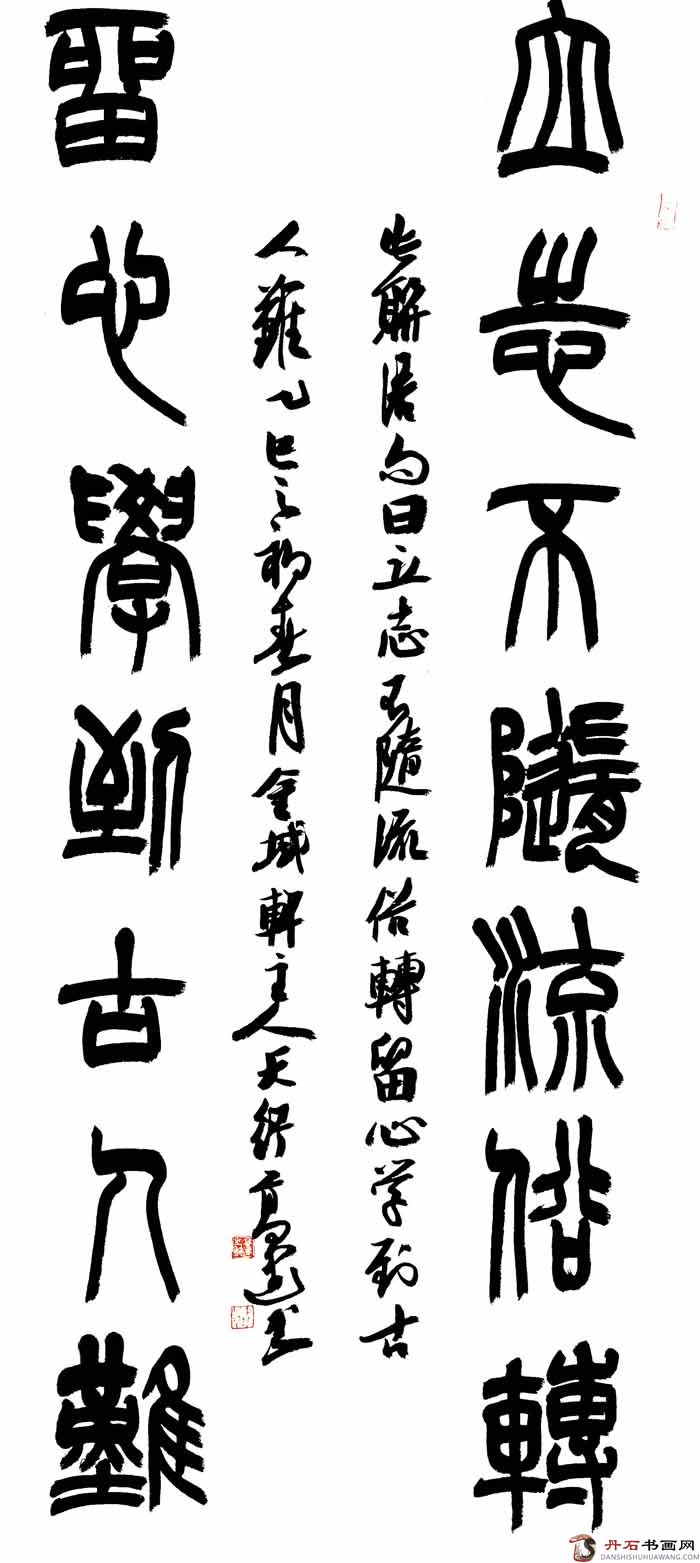 立志不隨流俗轉
此聯語句曰立志不隨流俗轉留心学到古
人難乙巳之初春月金城軒主人天行書
留心學到古人難
丹石书画网
DANSHISHUHUAWANG.COM